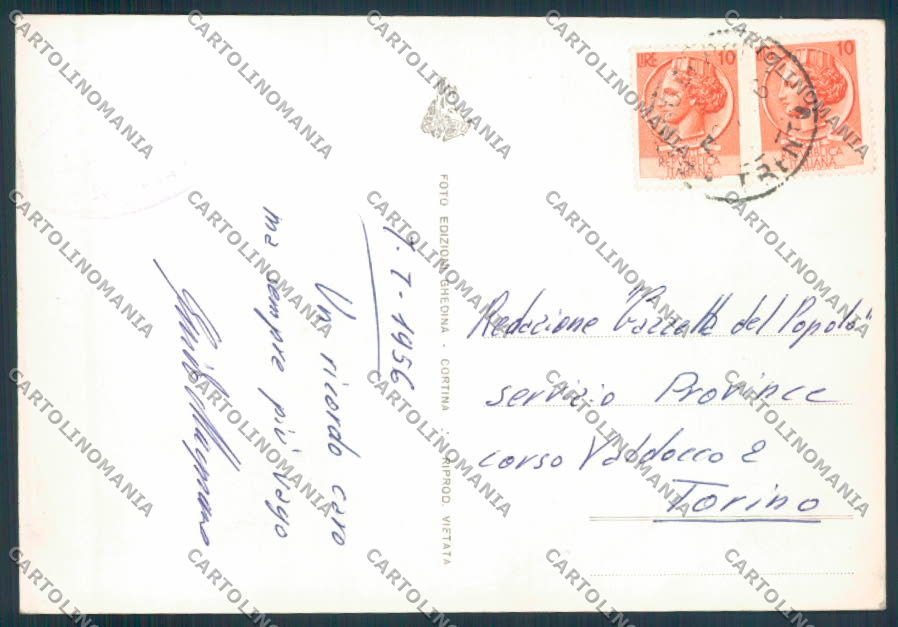 7-7-1956
Un ricordo caro
ma sempre più vago
FOTO EDIZIONI GHEDINA - CORTINA - RIPROD. VIETATA
LIRE 10
REPVBBLICA
ITALIANA
10
ITALIANA
Redazione "Gazzetta del Popolo"
servizio Province
corso Valdocco 2
Torino
CARTOLINOMANIA